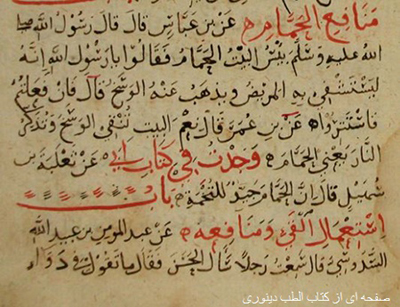 منافع الحمام ه عن بن عباس قال قال رسول الله صلى
الله عليه وسلم بئس البيت الحمام فقالوا يا رسول الله إنه
ليستشفي به المريض ويذهب عنه الوسخ قال فان فعلتم
فاستتروا ه عن بن عمر قال نعم البيت تنقي الوسخ وتذكر
النار يعني الحمام ه وجدت في كتاب أبي ه عن ثعلبة بن
سهيل قال ان الحمام جيد للتخمة ه باب
استعمال القيء ومنافعه ه عن عبد المومن بن عبيد الله
السدوسي قال سمعت رجلا سال الحسن فقال ما تقول في دواء
صفحه ای از کتاب الطب دینوری